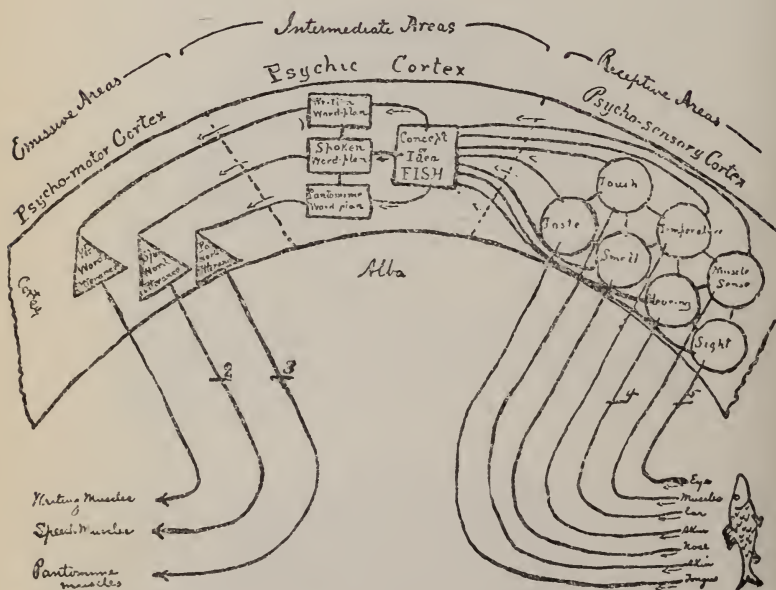 Intermediate Areas
Emissive Areas
Receptive Areas
Psychic Cortex
Psycho-motor Cortex
Psycho-sensory Cortex
Written
Word-plan
Spoken
Word-plan
Pantomime
Word plan
Concept
or
Idea
FISH
Touch
Taste
Temperature
Smell
Muscle
Sense
Hearing
Sight
Word
Utterance
Word
Utterance
Word
Utterance
Cortex
Alba
2
3
4
5
Writing Muscles
Speech Muscles
Pantomime
muscles
Eye
Muscles
Ear
Skin
Nose
Skin
Tongue